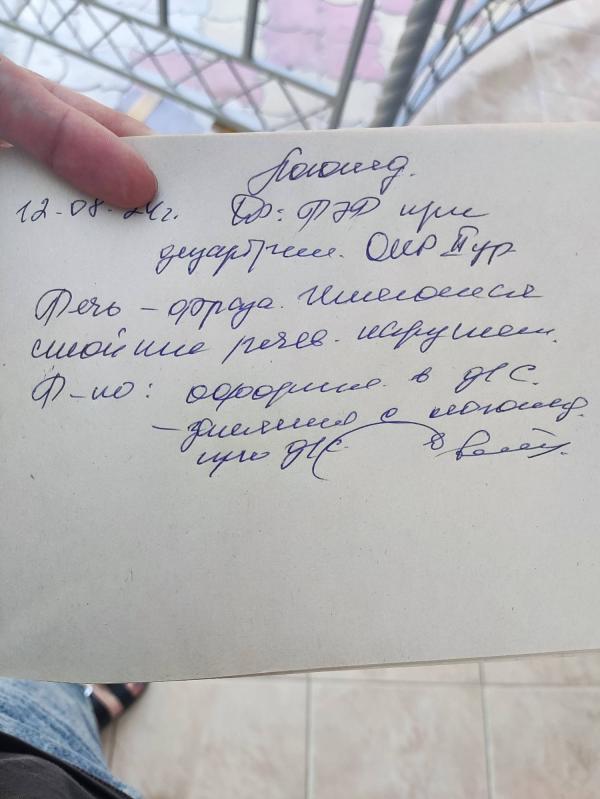 Логопед.
12-08-24г. Ds: РЭР при
дизартрии. ОНР III ур
Речь - фраза. Имеются
стойкие речев. нарушен.
Р-но: оформлен. в ДС.
- занятия с логопед.
при ДС.